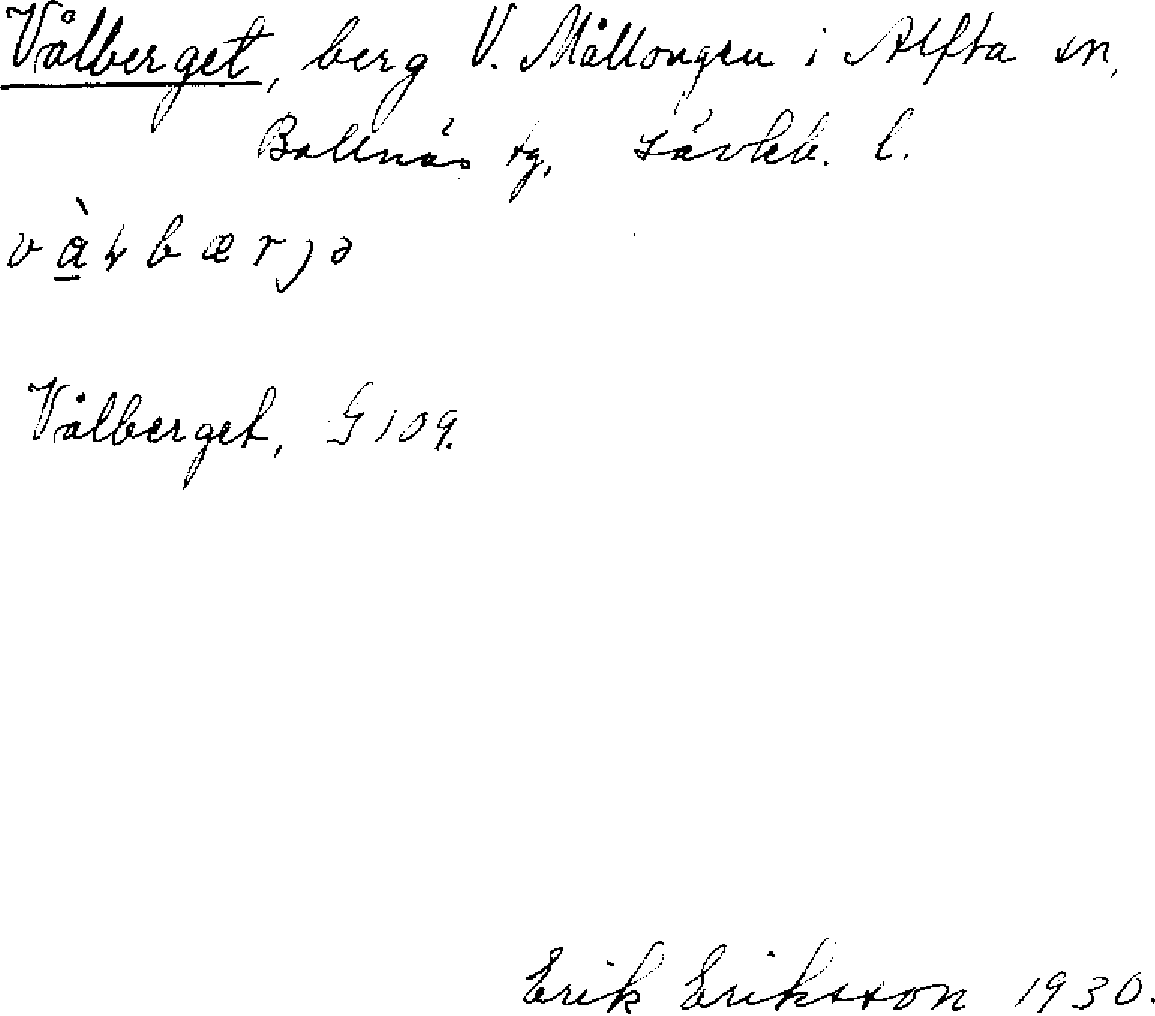 Vålberget, berg V. Mållongen i Alfta sn,
Bollnäs tg, Gävleb. l.
v à ł b æ r j ə
Vålberget, G 109.
Erik Eriksson 1930.